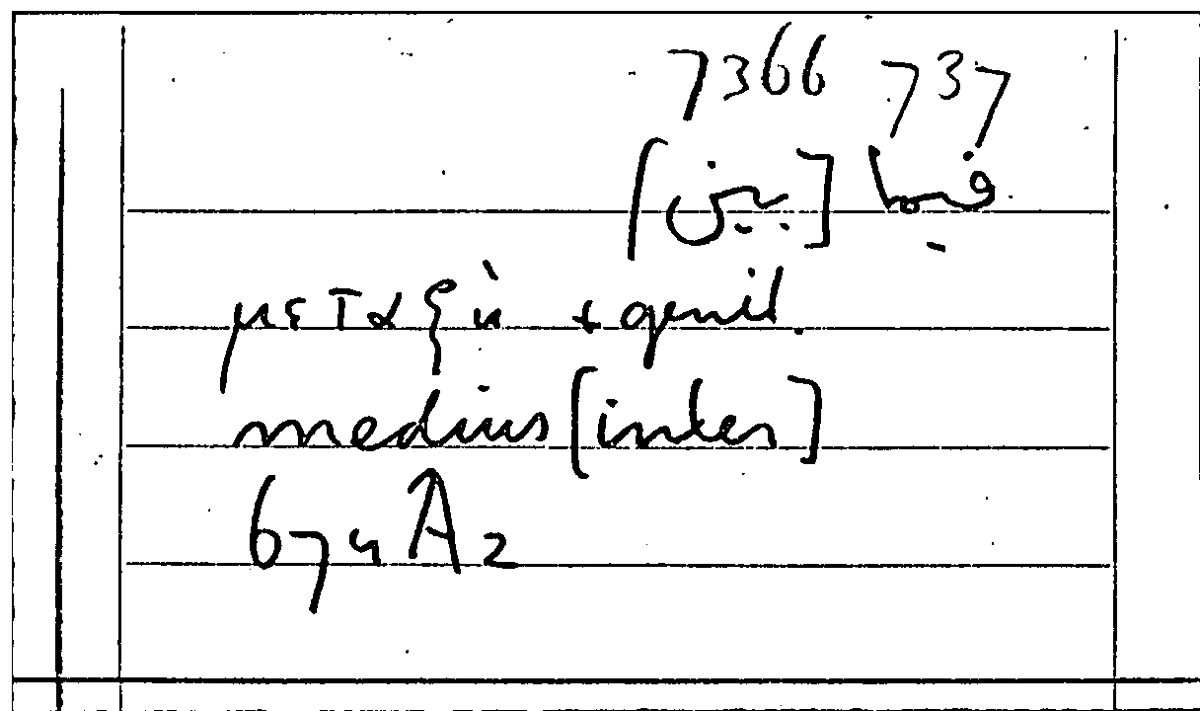 7366 737
فيما [بين]
μεταξὺ + genit.
medius [inter]
674 A 2